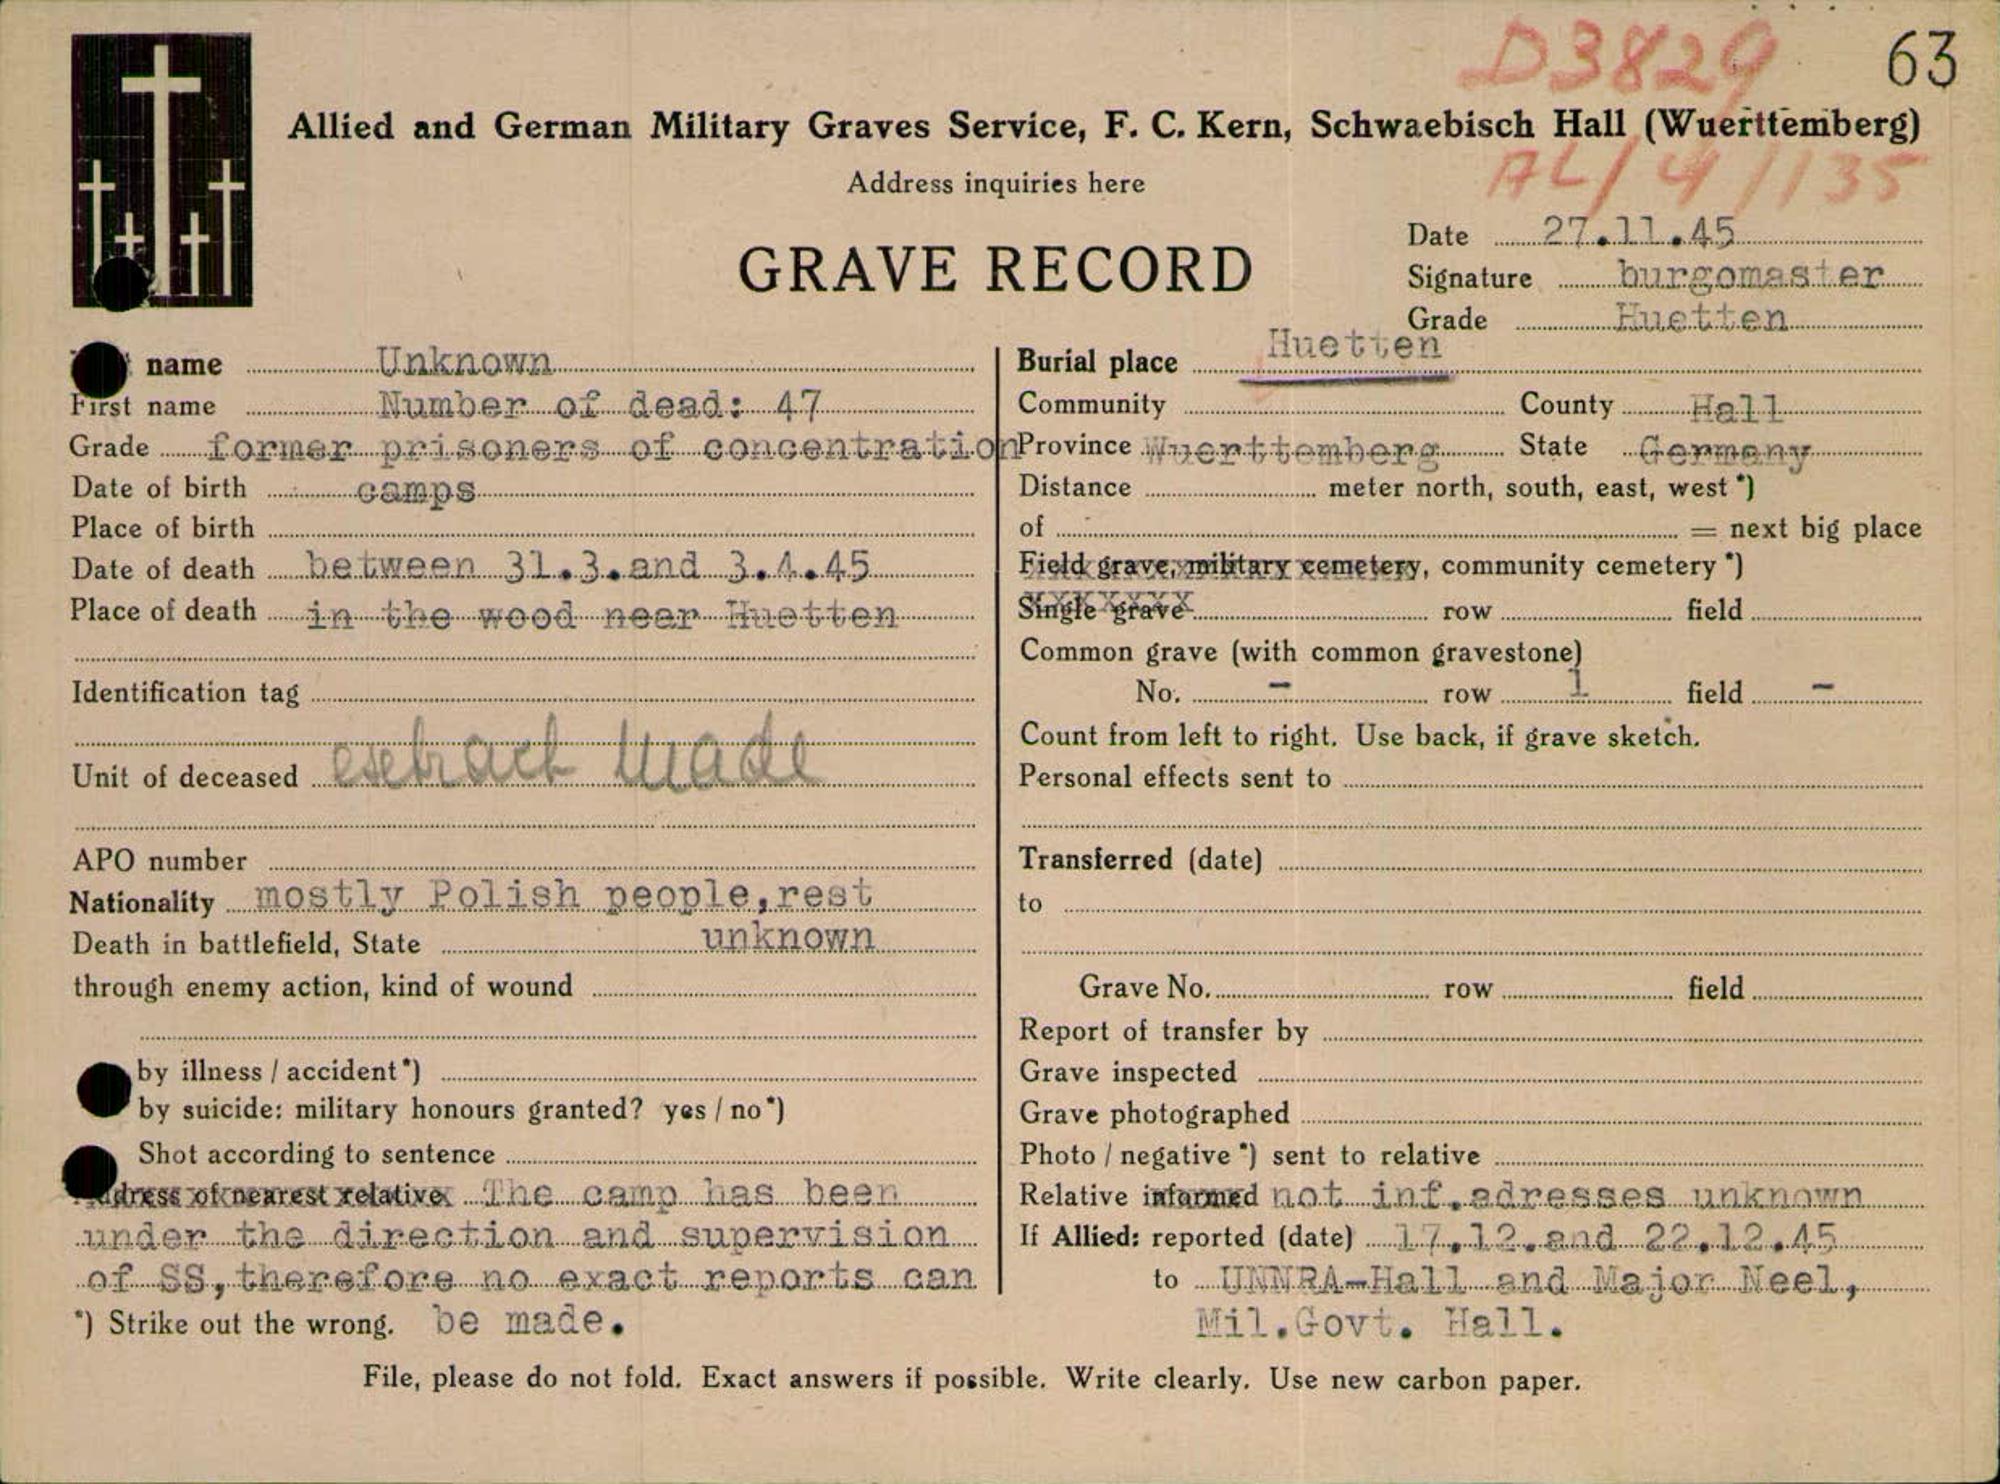 D3829 63
Allied and German Military Graves Service, F. C. Kern, Schwaebisch Hall (Wuerttemberg)
Address inquiries here
AL/4/135
GRAVE RECORD
Date 27.11.45
Signature burgomaster
Grade Huetten
name Unknown
First name Number of dead: 47
Grade former prisoners of concentration
Date of birth camps
Place of birth
Date of death between 31.3.and 3.4.45
Place of death in the wood near Huetten
Identification tag
extract made
Unit of deceased
APO number
Nationality mostly Polish people,rest
Death in battlefield, State unknown
through enemy action, kind of wound
by illness / accident*)
by suicide: military honours granted? yes / no*)
Shot according to sentence
dress of nearest relative The camp has been
under the direction and supervision
of SS,therefore no exact reports can
*) Strike out the wrong. be made.
Burial place Huetten
Community County Hall
Province Wuerttemberg State Germany
Distance meter north, south, east, west *)
of = next big place
Field grave, military cemetery, community cemetery *)
Single grave row field
Common grave (with common gravestone)
No. - row 1 field -
Count from left to right. Use back, if grave sketch.
Personal effects sent to
Transferred (date)
to
Grave No. row field
Report of transfer by
Grave inspected
Grave photographed
Photo / negative *) sent to relative
Relative informed not inf.adresses unknown
If Allied: reported (date) 17.12.and 22.12.45
to UNNRA-Hall and Major Neel,
Mil.Govt. Hall.
File, please do not fold. Exact answers if possible. Write clearly. Use new carbon paper.